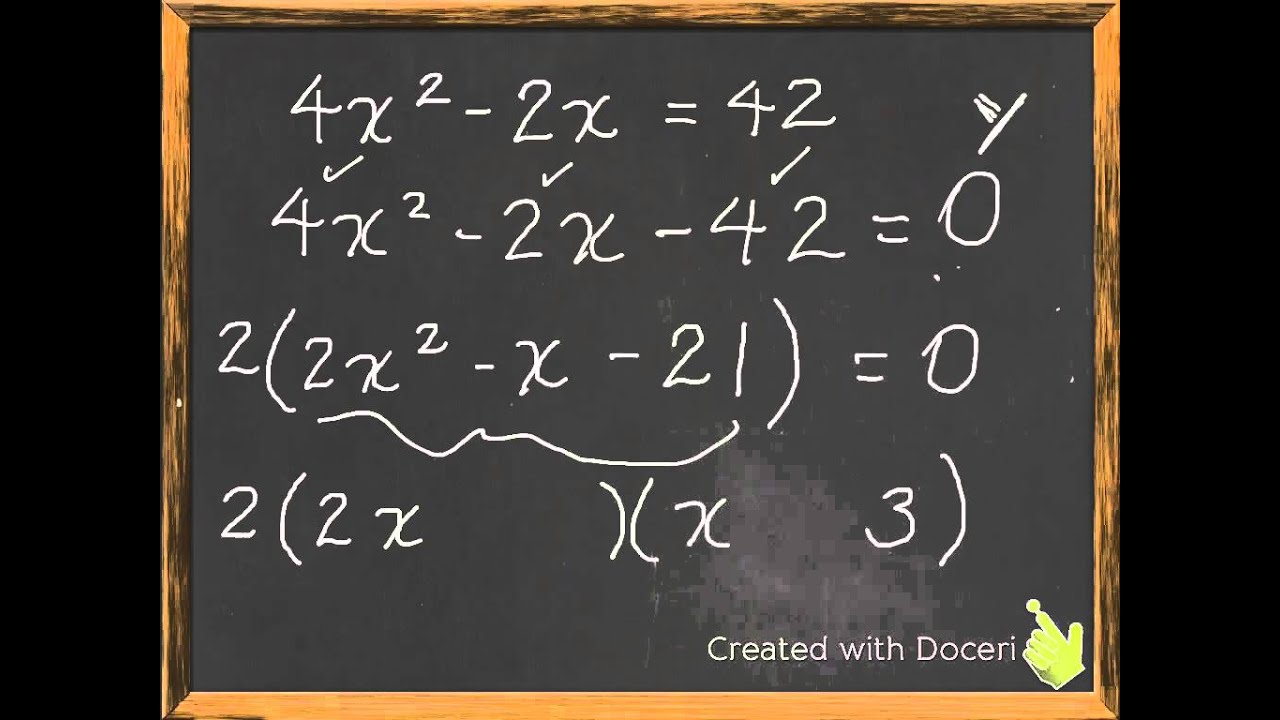 4x² - 2x = 42
4x² - 2x - 42 = 0
2(2x² - x - 21) = 0
2(2x )(x 3)
Created with Doceri